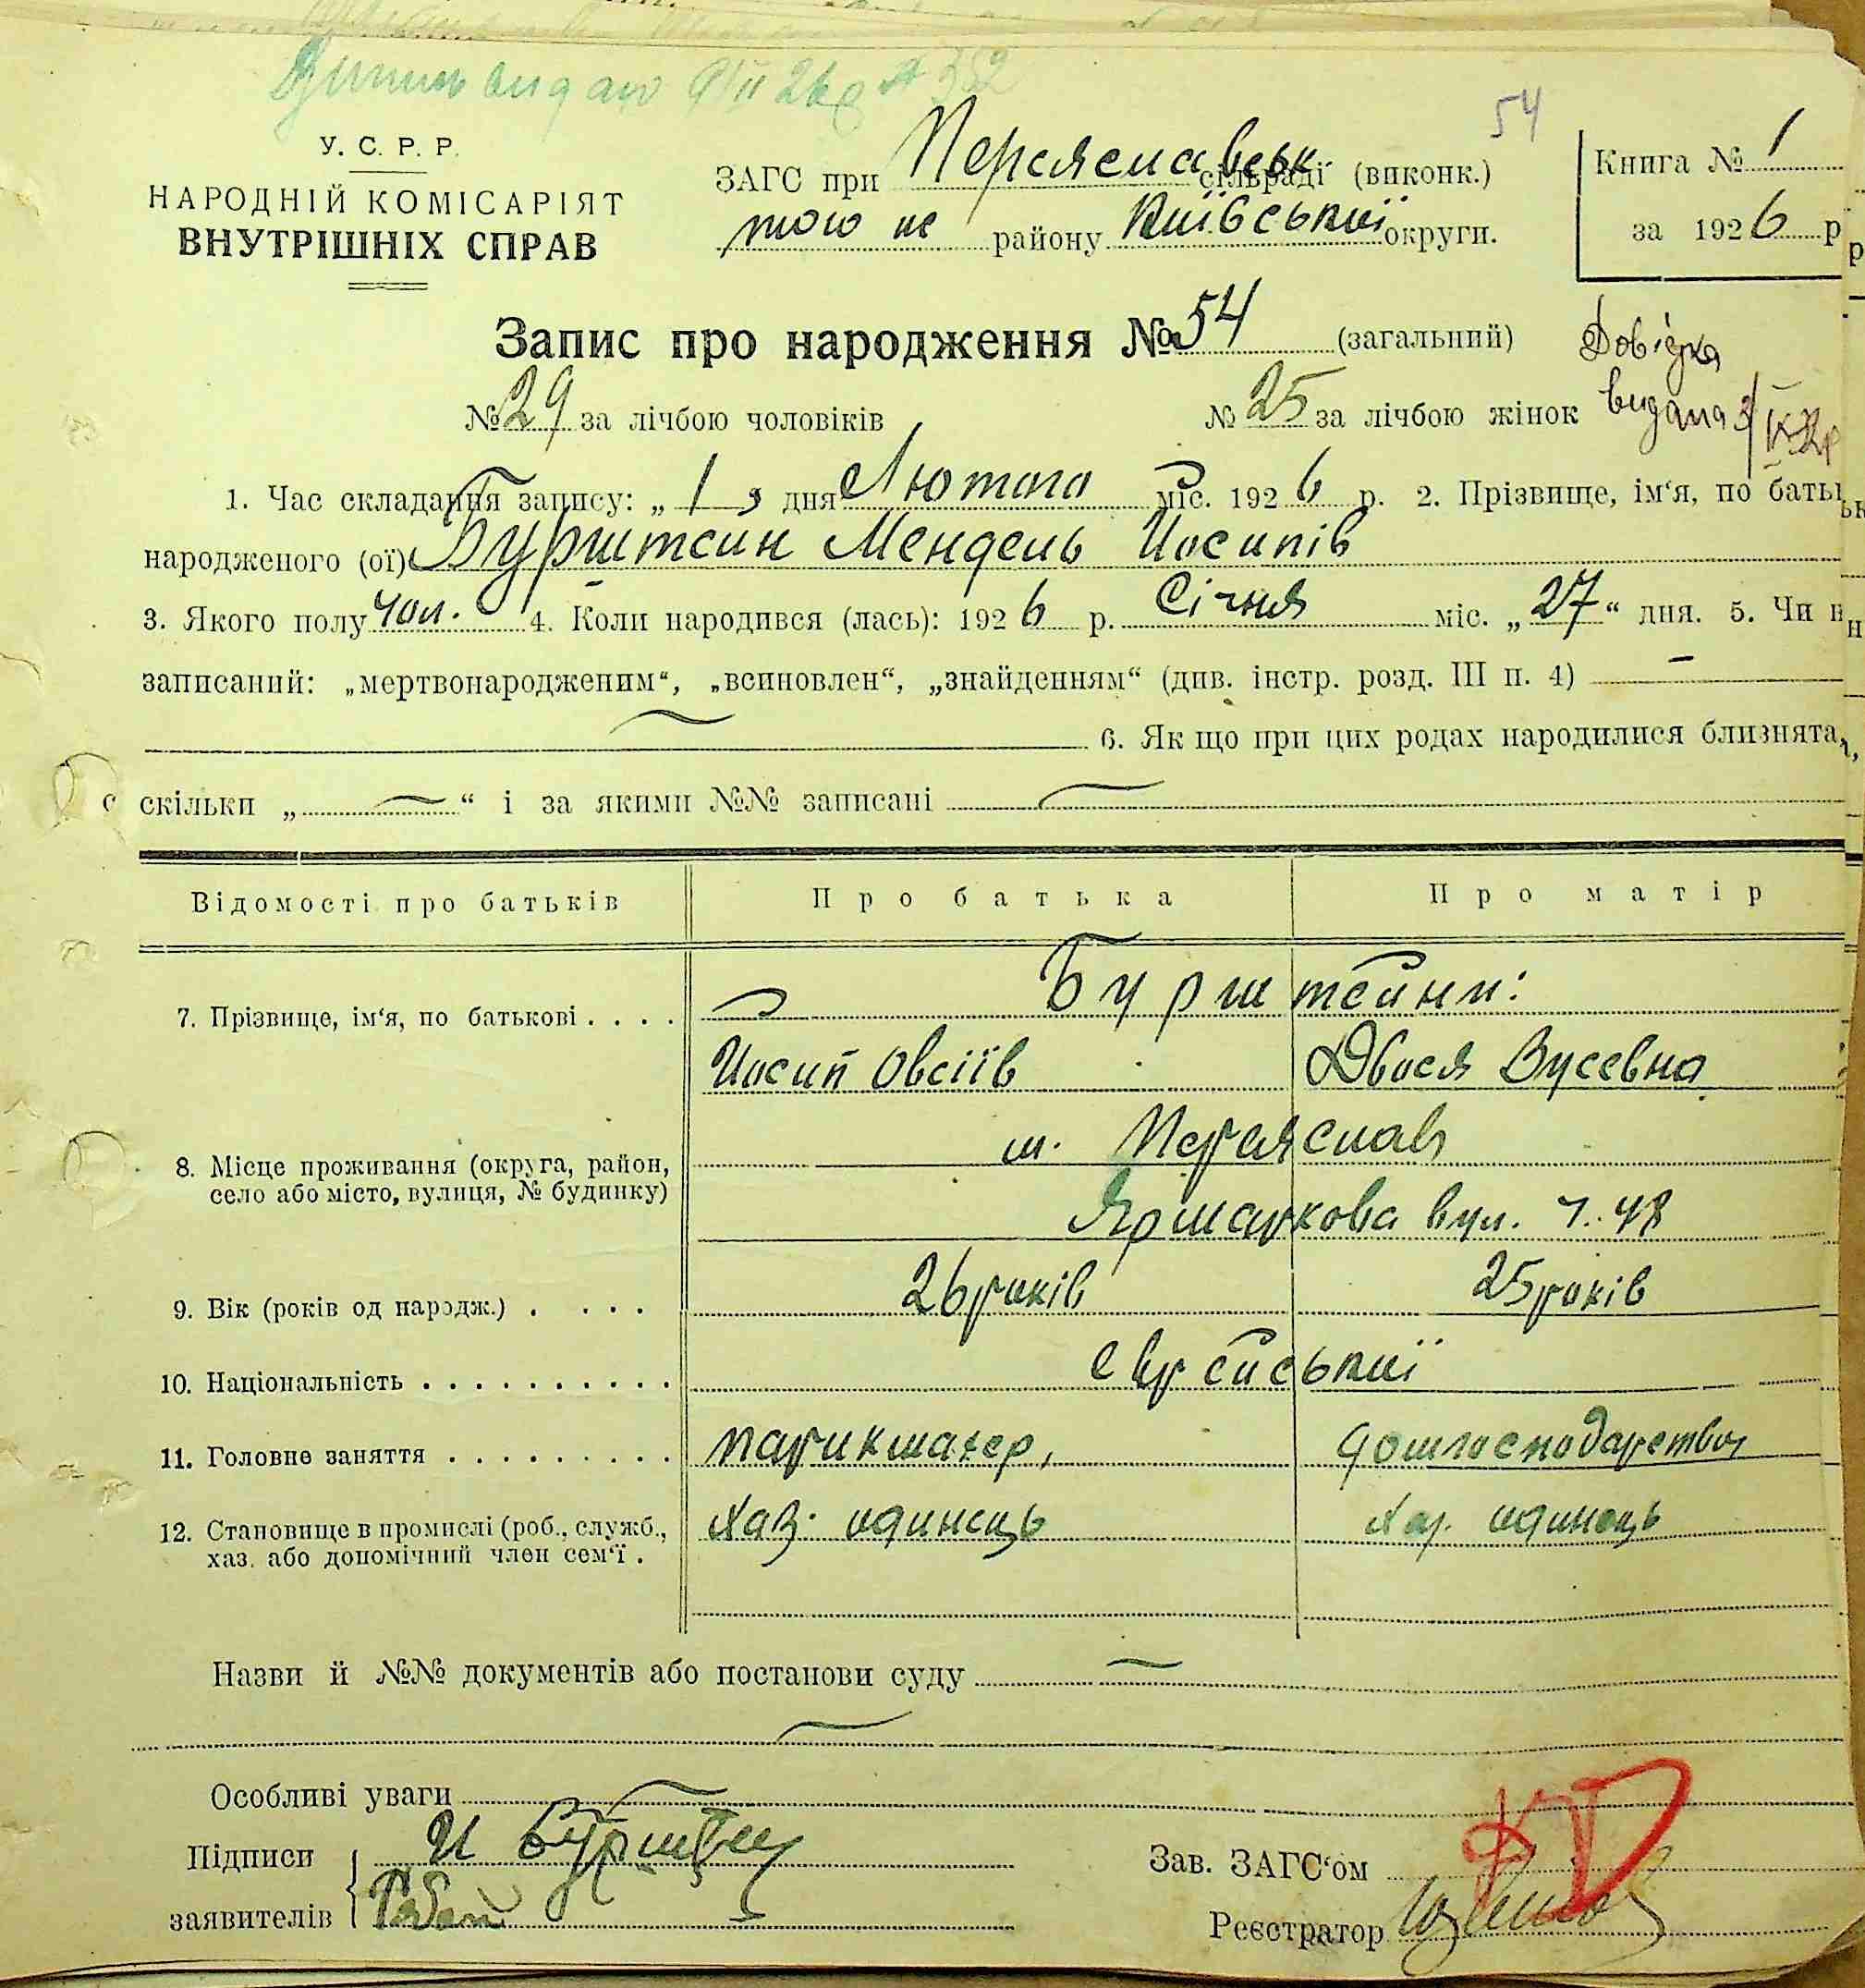 54
У. С. Р. Р.
НАРОДНІЙ КОМІСАРІЯТ
ВНУТРІШНІХ СПРАВ
ЗАГС при Переяславськ сільраді (виконк.)
того ж району Київської округи.
Книга № 1
за 1926 р
Запис про народження № 54 (загальний)
Довідка
видана
№ 29 за лічбою чоловіків № 25 за лічбою жінок
1. Час складання запису: „1„ дня Лютого міс. 1926 р. 2. Прізвище, ім‘я, по батьк
народженого (ої) Бурштейн Мендель Иосипів
3. Якого полу чол. 4. Коли народився (лась): 1926 р. Січня міс. „27“ дня. 5. Чи н
записаний: „мертвонародженим“, „всиновлен“, „знайденням“ (див. інстр. розд. III п. 4) —
6. Як що при цих родах народилися близнята,
скільки „ — “ і за якими №№ записані —
Відомості про батьків Про батька Про матір
7. Прізвище, ім‘я, по батькові . . . . Бурштейни:
Иосип Овсіїв Двося Вусевна
8. Місце проживання (округа, район,
село або місто, вулиця, № будинку)
м. Переяслав
Ярмаркова вул. ч. 48
9. Вік (років од народж.) . . . . 26 років 25 років
10. Національність . . . . . . . . . . Єврейської
11. Головне заняття . . . . . . . . . парикмахер, домгосподарство
12. Становище в промислі (роб., служб.,
хаз. або допомічний член сем‘ї .
хаз. одинець хаз. одинець
Назви й №№ документів або постанови суду —
Особливі уваги
Підписи
заявителів
И Бурштейн
Зав. ЗАГС‘ом
Реєстратор